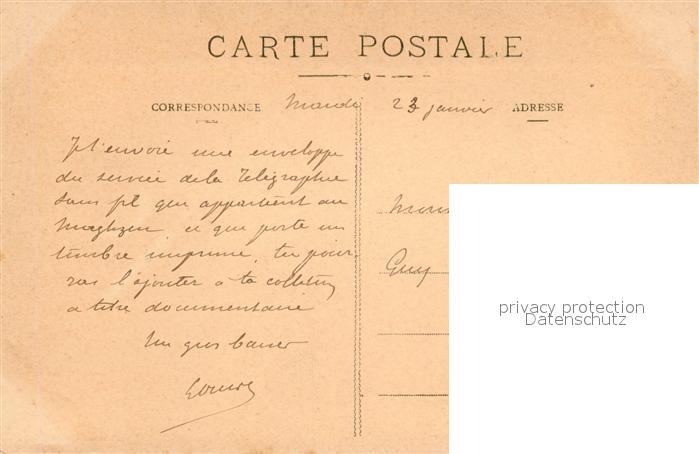 CARTE POSTALE
CORRESPONDANCE Mardi 23 janvier ADRESSE
Je t'envoie une enveloppe
du service de la Télégraphie
sans fil qui appartient au
Maghzen, et qui porte un
timbre imprimé, tu pour-
ras l'ajouter à ta collection
a titre documentaire
Un gros baiser
Guy
privacy protection
Datenschutz